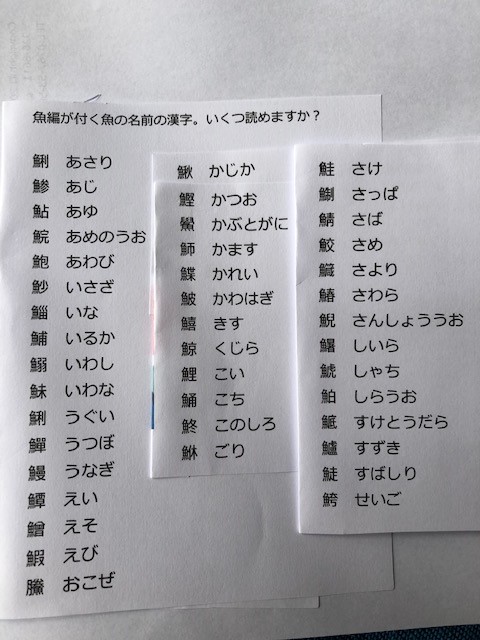 魚編が付く魚の名前の漢字。いくつ読めますか？
鯏 あさり
鯵 あじ
鮎 あゆ
鯇 あめのうお
鮑 あわび
魦 いさざ
鯔 いな
鯆 いるか
鰯 いわし
鮇 いわな
鯏 うぐい
鱓 うつぼ
鰻 うなぎ
鱏 えい
鱛 えそ
鰕 えび
鰧 おこぜ
鰍 かじか
鰹 かつお
鱟 かぶとがに
魳 かます
鰈 かれい
鮍 かわはぎ
鱚 きす
鯨 くじら
鯉 こい
鯒 こち
鮗 このしろ
鮴 ごり
鮭 さけ
鯯 さっぱ
鯖 さば
鮫 さめ
鱵 さより
鰆 さわら
鯢 さんしょううお
しいら
鯱 しゃち
鮊 しらうお
鯳 すけとうだら
鱸 すずき
鯐 すばしり
鮬 せいご